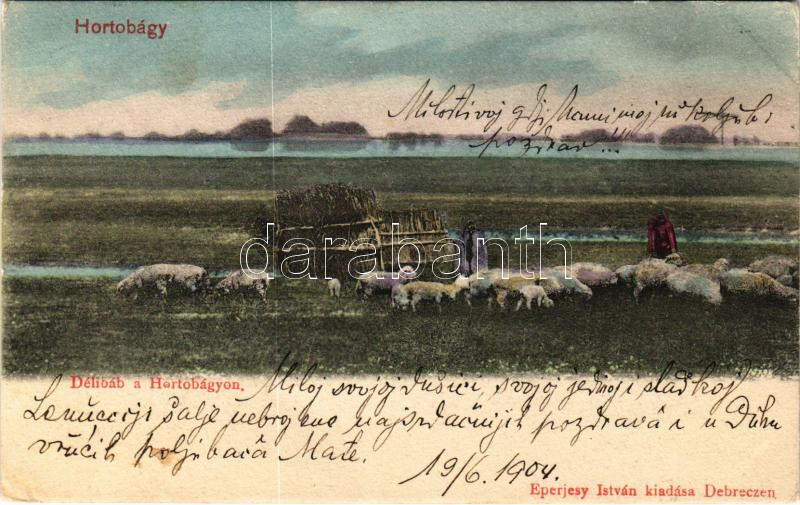 Hortobágy
Milostivoj gdji Mami mojni poljub i
pozdrav!!!
darabanth.com
Délibáb a Hortobágyon.
Miloj svojoj dušici, svojoj jedinoj i sladkoj
šalje nebrojeno najsrdačnijih pozdrava i u Duhu
vrućih poljubaca Mate.
19/6. 1904.
Eperjesy István kiadása Debreczen